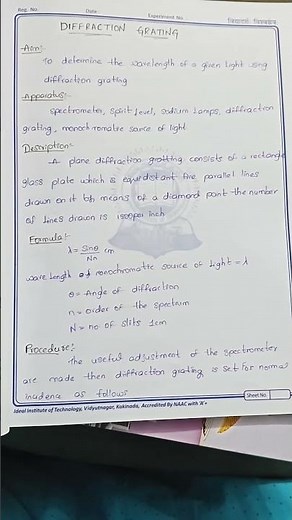 Reg. No.
Date:
Experiment No.
DIFFRACTION GRATING
Aim:-
To determine the wavelength of a given light using
diffraction grating
Apparatus:-
Spectrometer, Spirit level, sodium lamps, diffraction
grating, monochromatic source of light.
Description:-
A plane diffraction gratting consists of a rectangle
glass plate which is equidistant fine parallel lines
drawn on it by means of a diamond point the number
of lines drawn is 15000 per inch
Formula:-
λ = Sinθ / Nn cm
wave length of monochromatic source of light = λ
θ = Angle of diffraction
n = order of the spectrum
N = no of slits 1cm
Procedure:-
The useful adjustment of the spectrometer
are made then diffraction grating is set for normal
incidence as follows
Sheet No.
Ideal Institute of Technology, Vidyutnagar, Kakinada, Accredited By NAAC with 'A'+